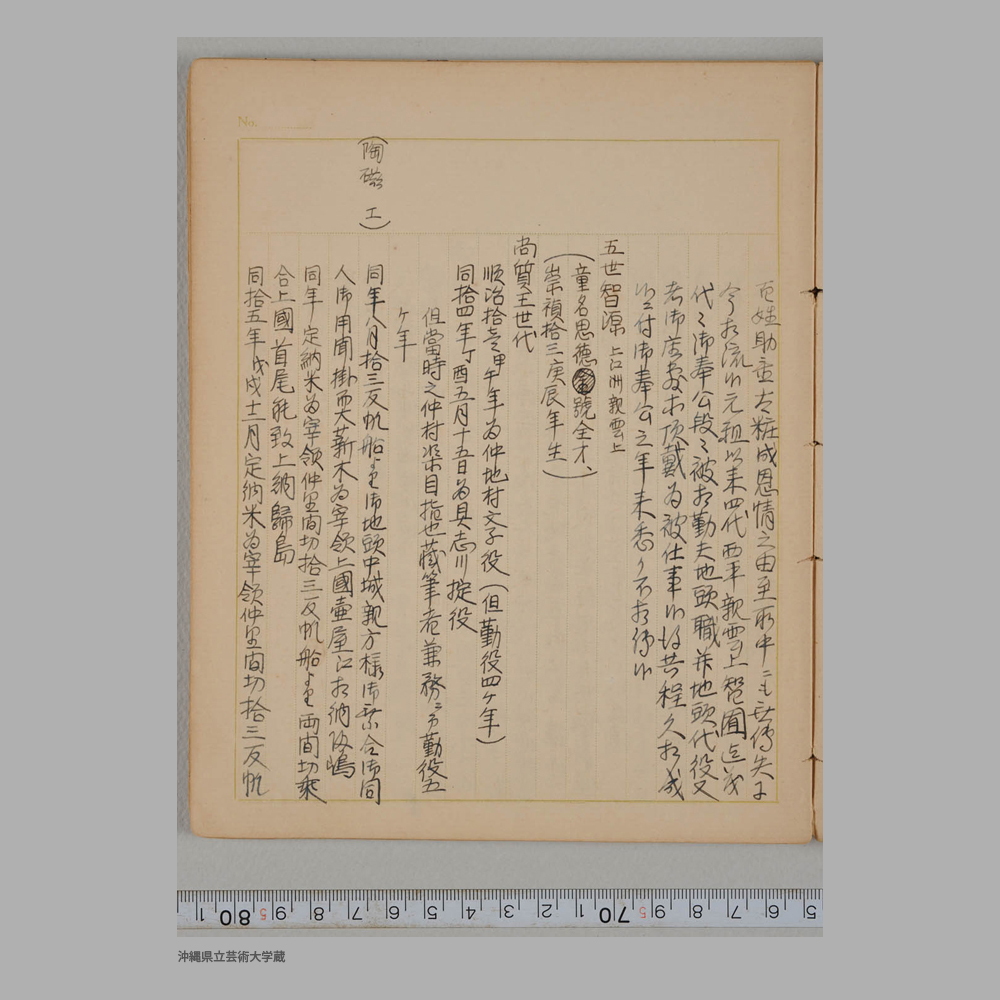 No.
百姓助重太粧成恩情之由至取中ニも無傳失于
今相流レ元祖以来四代西平親雲上智囿迄
代々御奉公段々被相勤夫地頭職并地頭代役又
者御座敷本頂戴為被仕事候得共程久相成
付御奉公之年来悉く不相傳候
五世智源 上江洲親雲上
(童名思德 號全才、
崇禎拾三庚辰年生)
尚質王世代
順治拾壱甲午年為仲地村文子役(但勤役四ケ年)
同拾四年丁酉五月十五日為具志川掟役
但當時之仲村渠目指也藏筆者兼務ニ而勤役五
ケ年
(陶磁工)
同年八月拾三反帆船より御地頭中城親方様御乗合御同
人御用聞掛而大薪木為宰領上國壷屋江相納帰嶋
同年定納米為宰領仲里間切拾三反帆船より両間切乗
合上國首尾能致上納歸島
同拾五年戊戌十二月定納米為宰領仲里間切拾三反帆
5 6 7 8 9 5 70 1 2 3 4 5 6 7 8 9 5 80 1
沖縄県立芸術大学蔵